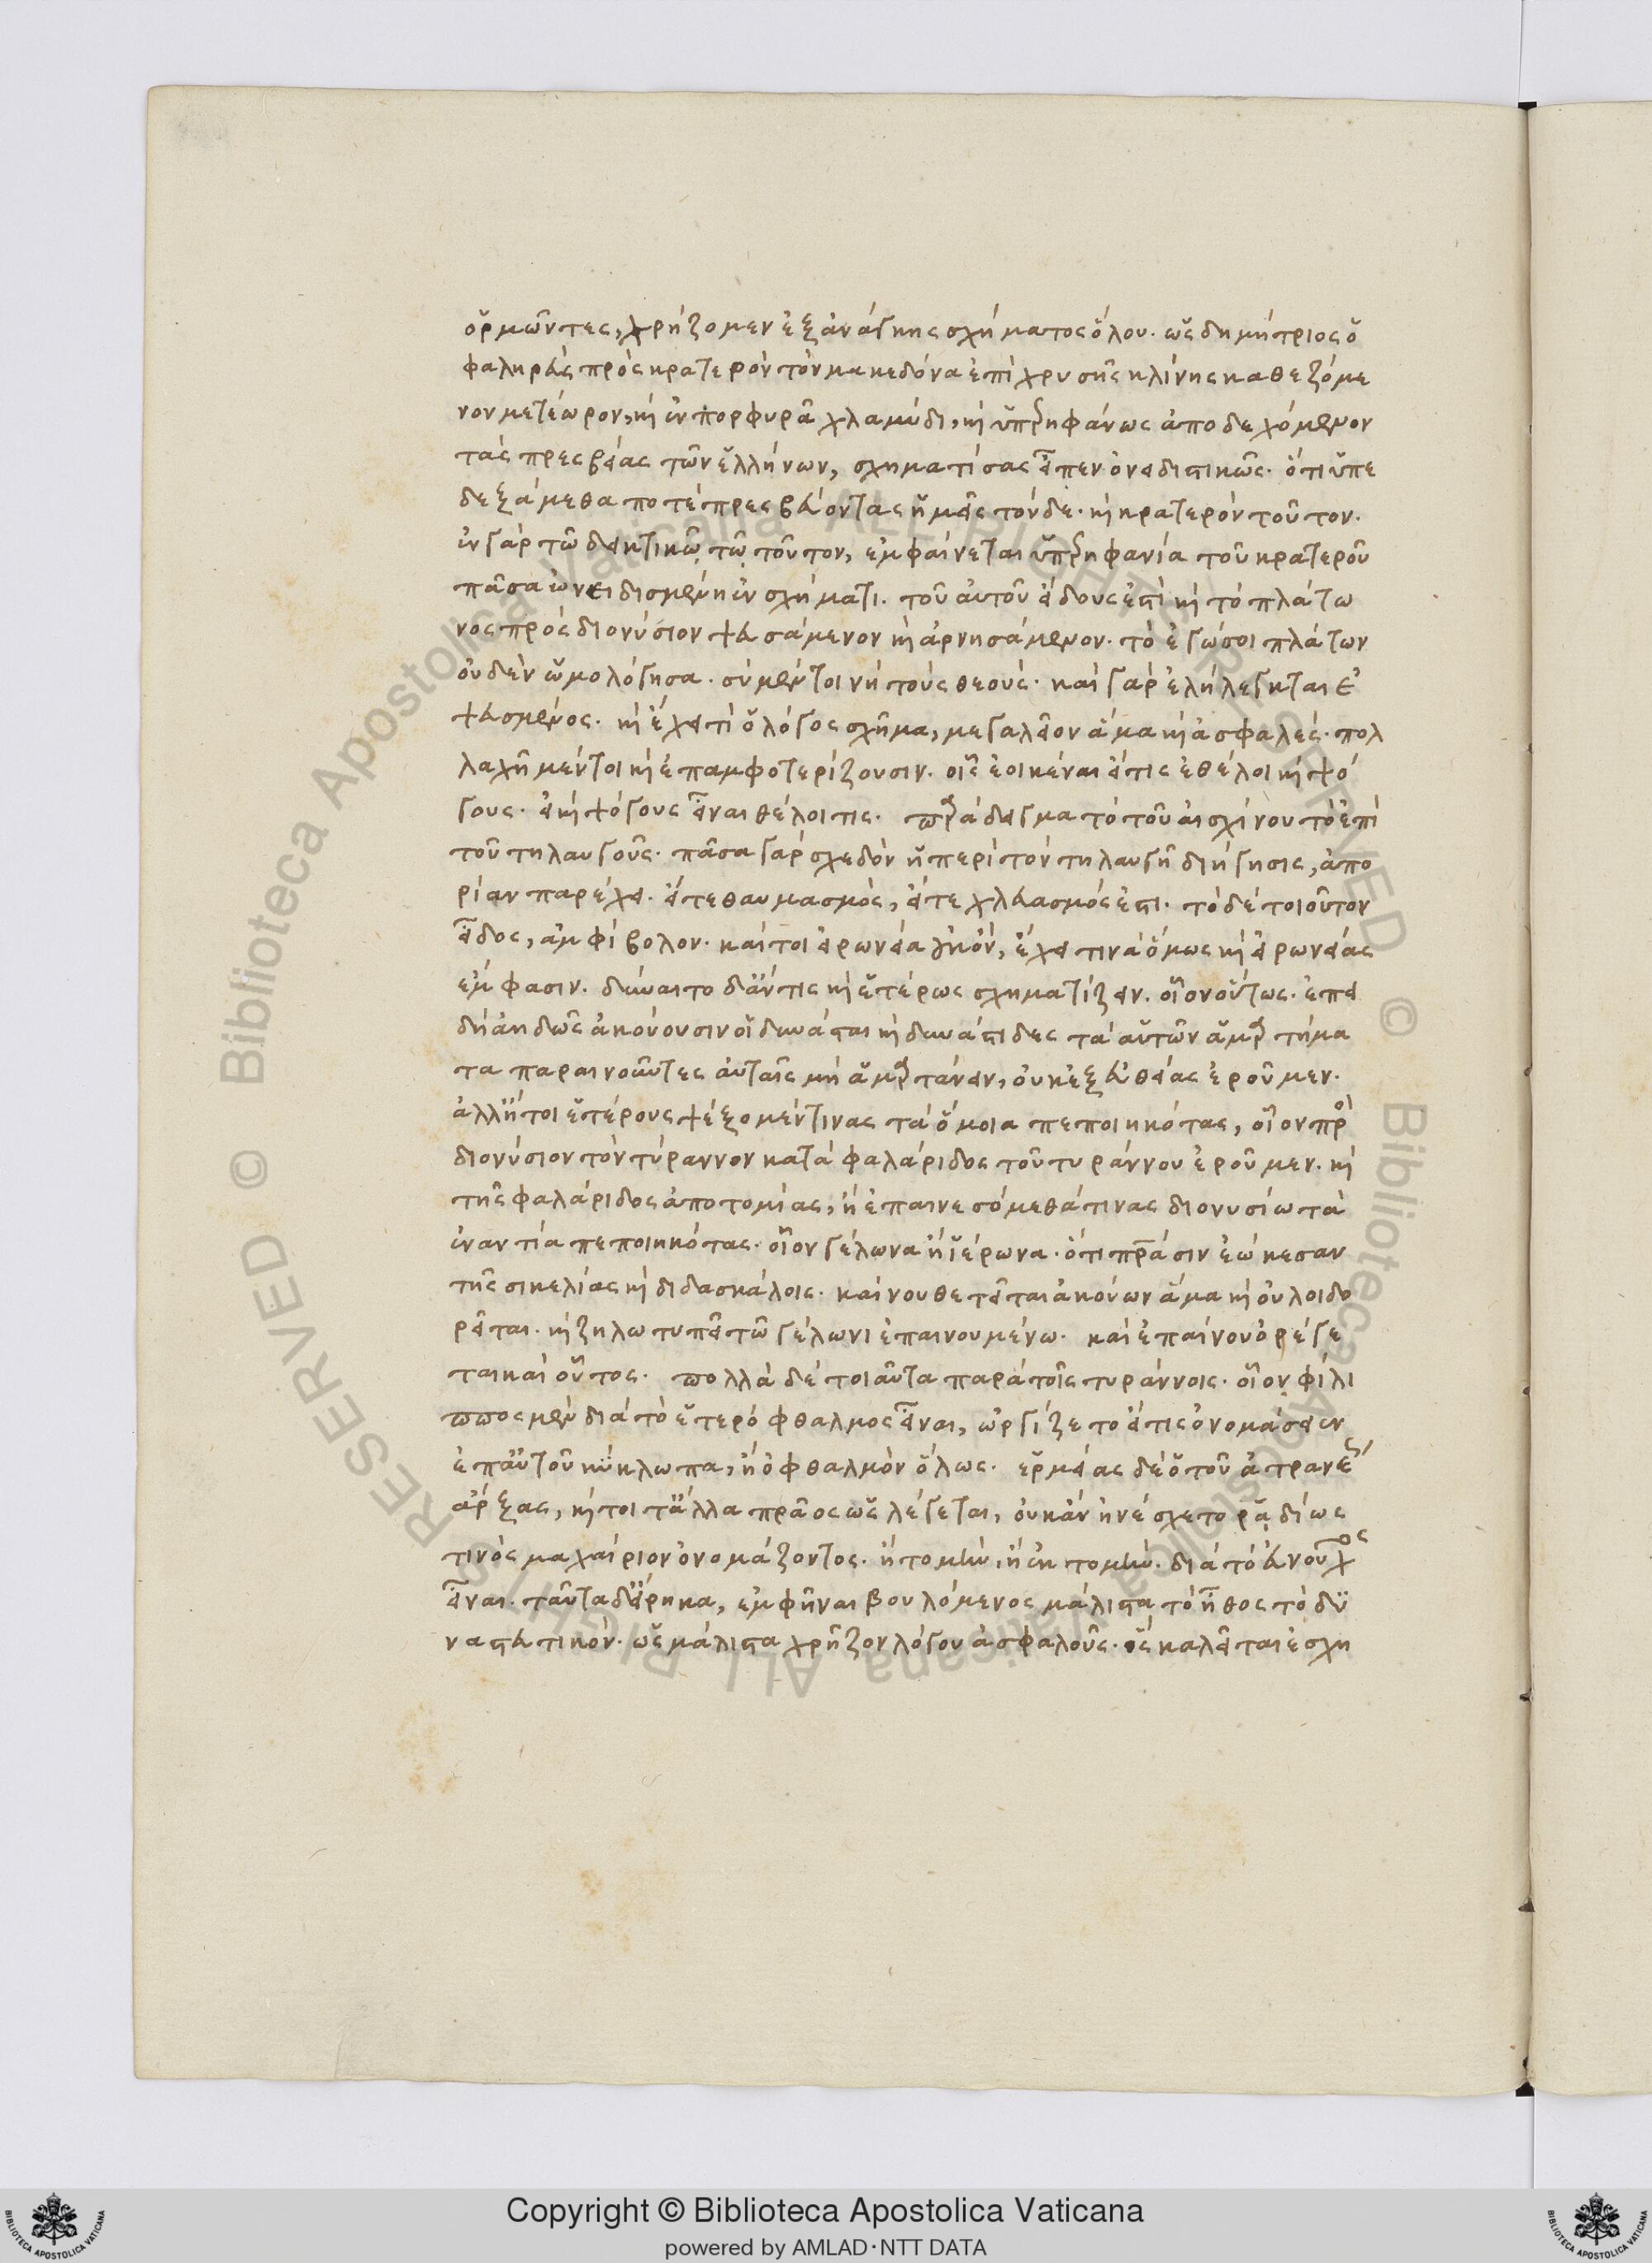 ὁρμῶντες, χρήζομεν ἐξ ἀνάγκης σχήματος ὅλου. ὡς δημήτριος ὁ
φαληρεὺς πρὸς κρατερὸν τὸν μακεδόνα ἐπὶ χρυσῆς κλίνης καθεζόμε
νον μετέωρον, κὶ ἐν πορφυρᾶ χλαμύδι, κὶ ὑπερηφάνως ἀποδεχόμενον
τὰς πρεσβείας τῶν ἑλλήνων, σχηματίσας εἶπεν ὀνειδιστικῶς. ὅτι ὑπε
δεξάμεθα ποτὲ πρεσβεύοντας ἡμεῖς τόνδε. κὶ κρατερὸν τοῦτον.
ἐν γὰρ τῶ δεικτικῶ τῶ τοῦτον, ἐμφαίνεται ὑπερηφανία τοῦ κρατεροῦ
πᾶσα ὠνειδισμένη ἐν σχήματι. τοῦ αὐτοῦ εἴδους ἐστὶ κὶ τὸ πλάτω
νος πρὸς διονύσιον ψευσάμενον κὶ ἀρνησάμενον. τὸ ἐγώ σοι πλάτων
οὐδὲν ὡμολόγησα. σὺ μέντοι νὴ τοὺς θεούς. καὶ γὰρ ἐλήλεγκται ἐ
ψευσμένος. κὶ ἔχει τὶ ὁ λόγος σχῆμα, μεγαλεῖον ἅμα κὶ ἀσφαλές. πολ
λαχῆ μέντοι κὶ ἐπαμφοτερίζουσιν. οἷς ἐοικέναι εἴ τις ἐθέλοι κὶ ψό
γους. εἰκῆ ψόγους εἶναι θέλοι τις. παράδειγμα τὸ τοῦ αἰσχίνου τὸ ἐπὶ
τοῦ τηλαυγοῦς. πᾶσα γὰρ σχεδὸν ἡ περὶ τὸν τηλαυγῆ διήγησις, ἀπο
ρίαν παρέχει. εἴτε θαυμασμὸς, εἴτε χλευασμός ἐστι. τὸ δὲ τοιοῦτον
εἶδος, ἀμφίβολον. καίτοι εἰρωνεία οὐκ ὂν, ἔχει τινὰ ὅμως κὶ εἰρωνείας
ἔμφασιν. δύναιτο δ' ἄν τις κὶ ἑτέρως σχηματίζειν. οἷον οὕτως. ἐπει
δὴ ἀηδῶς ἀκούουσιν οἱ δυνάσται κὶ δυνάστιδες τὰ αὑτῶν ἁμαρτήμα
τα παραινοῦντες αὐταῖς μὴ ἁμαρτάνειν, οὐκ ἐξ εὐθείας ἐροῦμεν.
ἀλλ' ἤτοι ἑτέρους ψέξομέν τινας τὰ ὅμοια πεποιηκότας, οἷον πρὸς
διονύσιον τὸν τύραννον κατὰ φαλάριδος τοῦ τυράννου ἐροῦμεν. κὶ
τῆς φαλάριδος ἀποτομίας, ἢ ἐπαινεσόμεθά τινας διονυσίω τὰ
ἐναντία πεποιηκότας. οἷον γέλωνα ἢ ἱέρωνα. ὅτι πατράσιν ἐώκεσαν
τῆς σικελίας κὶ διδασκάλοις. καὶ νουθετεῖται ἀκούων ἅμα κὶ οὐ λοιδο
ρεῖται. κὶ ζηλωτυπεῖ τῶ γέλωνι ἐπαινουμένω. καὶ ἐπαίνου ὀρέγε
ται καὶ οὗτος. πολλὰ δὲ τοιαῦτα παρὰ τοῖς τυράννοις. οἷον φίλι
ππος μὲν διὰ τὸ ἑτερόφθαλμος εἶναι, ὠργίζετο εἴ τις ὀνομάσειεν
ἐπ' αὐτοῦ κύκλωπα, ἢ ὀφθαλμὸν ὅλως. ἑρμείας δὲ ὁ τοῦ ἀτρανέως
ἄρξας, κὶ τοι τἆλλα πρᾶος ὡς λέγεται, οὐκ ἂν ἠνέσχετο ῥᾳδίως
τινὸς μαχαίριον ὀνομάζοντος. ἢ τομὴν, ἢ ἐκτομὴν. διὰ τὸ εὐνοῦχος
εἶναι. ταῦτα δ' εἴρηκα, ἐμφῆναι βουλόμενος μάλιστα τὸ ἦθος τὸ δυ
ναστευτικόν. ὡς μάλιστα χρῆζον λόγου ἀσφαλοῦς. ὃς καλεῖται ἐσχη
Copyright © Biblioteca Apostolica Vaticana
powered by AMLAD·NTT DATA